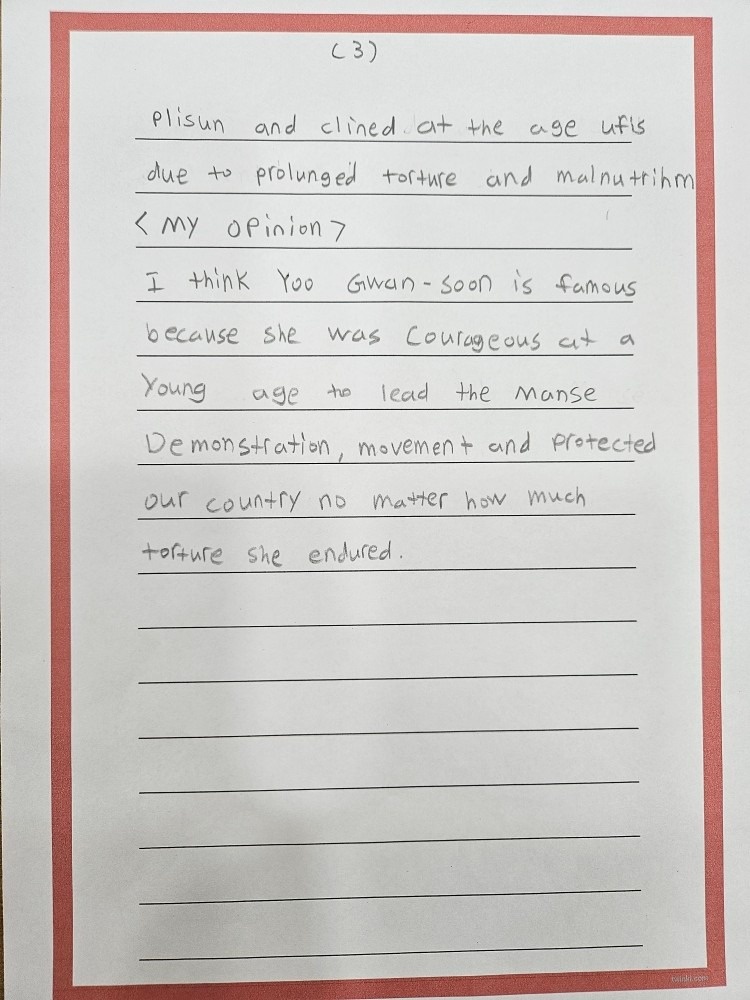 (3)
plisun and clined at the age ufis
due to prolunged torture and malnutrihm
<My opinion>
I think Yoo Gwan-soon is famous
because she was courageous at a
Young age to lead the Manse
Demonstration, movement and protected
our country no matter how much
torture she endured.
twinkl.com